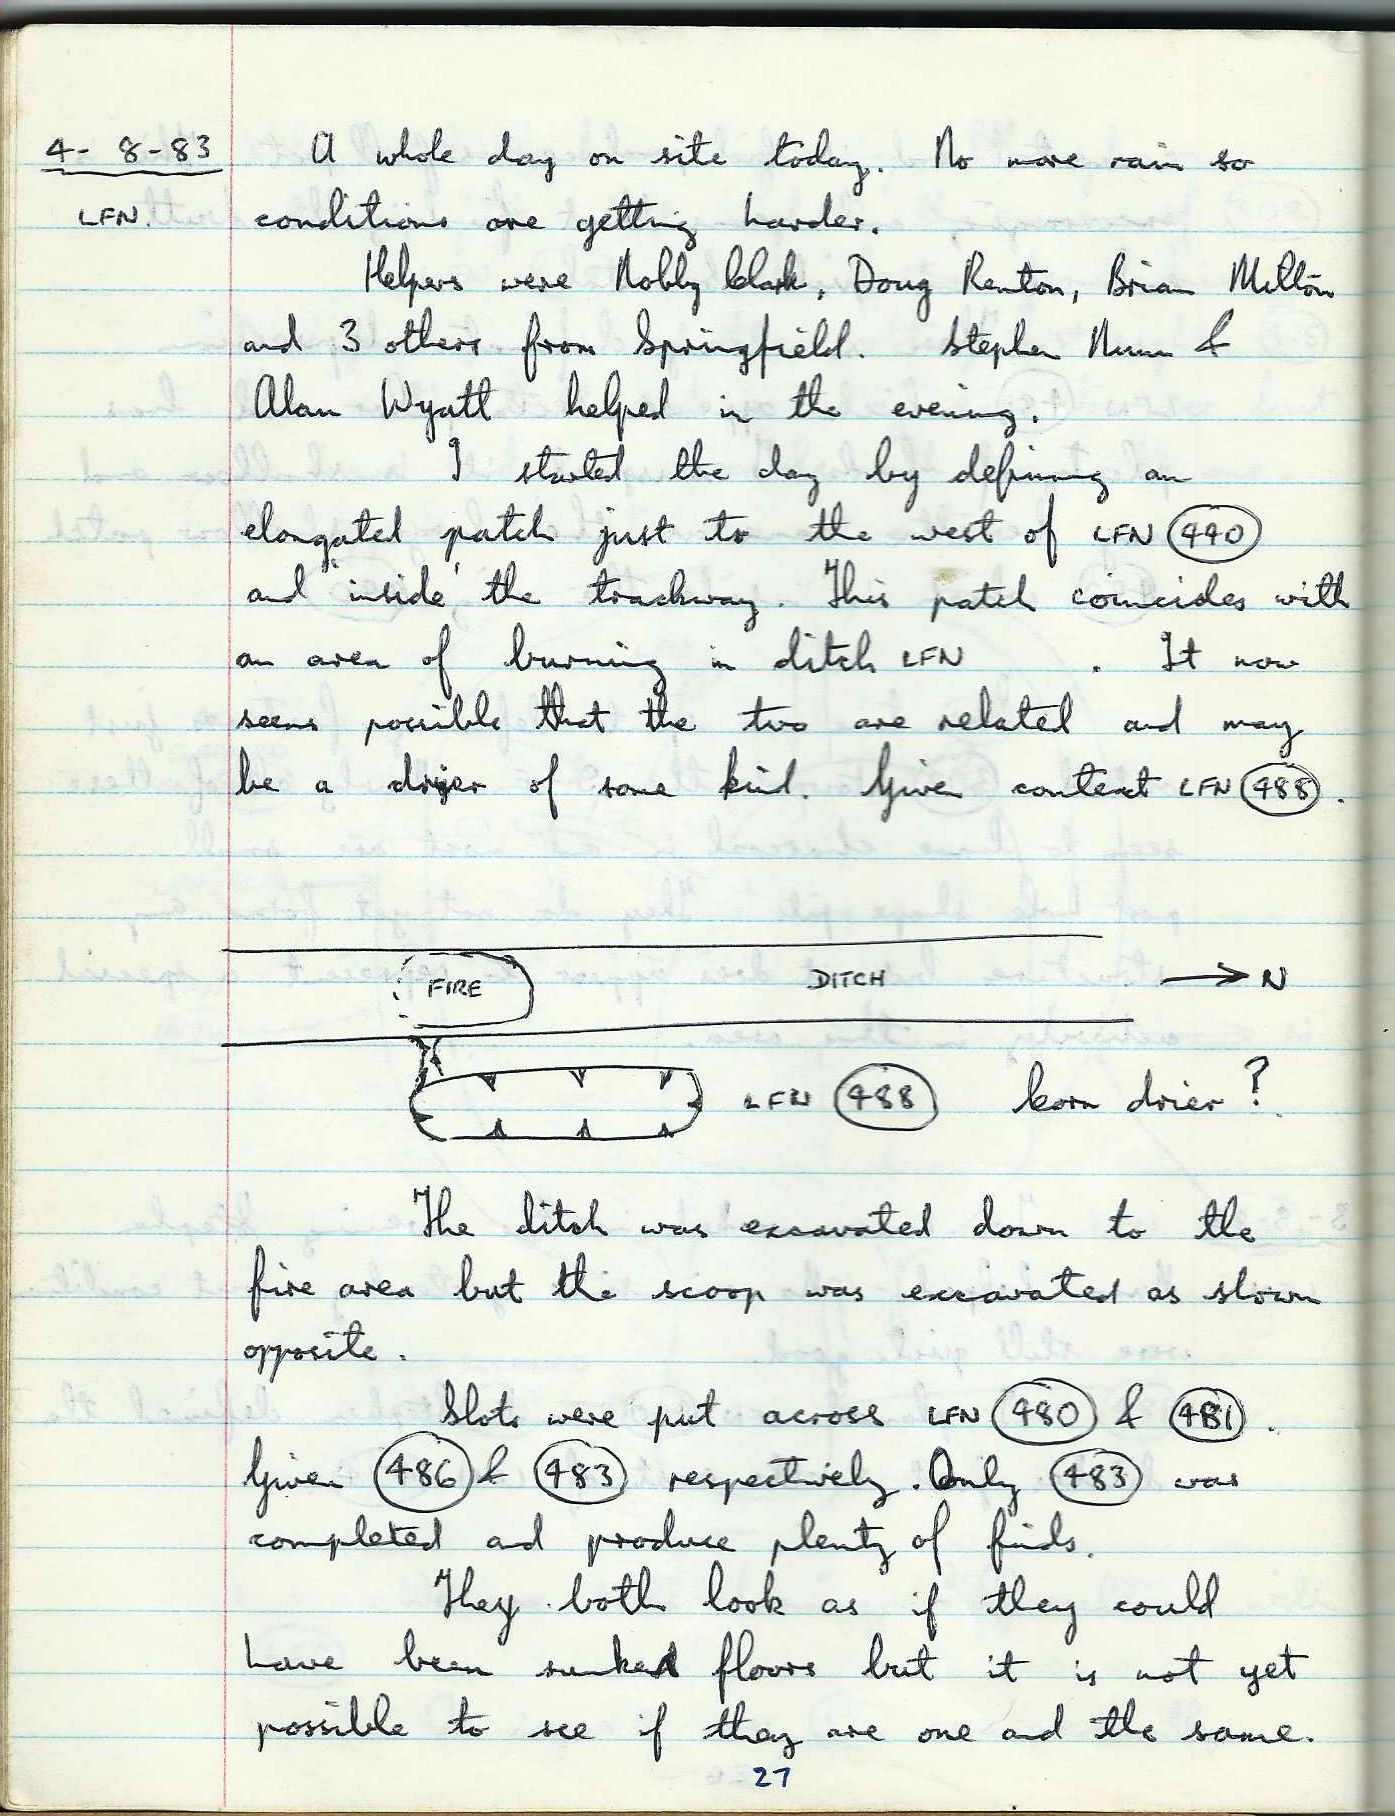 4-8-83 A whole day on site today. No more rain so
LFN. conditions are getting harder.
Helpers were Nobby Clark, Doug Renton, Brian Milton
and 3 others from Springfield. Stephen Nunn &
Alan Wyatt helped in the evening.
I started the day by defining an
elongated patch just to the west of LFN 440
and 'inside' the trackway. This patch coincides with
an area of burning in ditch LFN . It now
seems possible that the two are related and may
be a drier of some kind. Given context LFN 488.
FIRE DITCH → N
LFN 488 Corn drier?
The ditch was excavated down to the
fire area but the scoop was excavated as shown
opposite.
Slots were put across LFN 480 & 481.
Given 486 & 483 respectively. Only 483 was
completed and produce plenty of finds.
They both look as if they could
have been sunken floors but it is not yet
possible to see if they are one and the same.
27